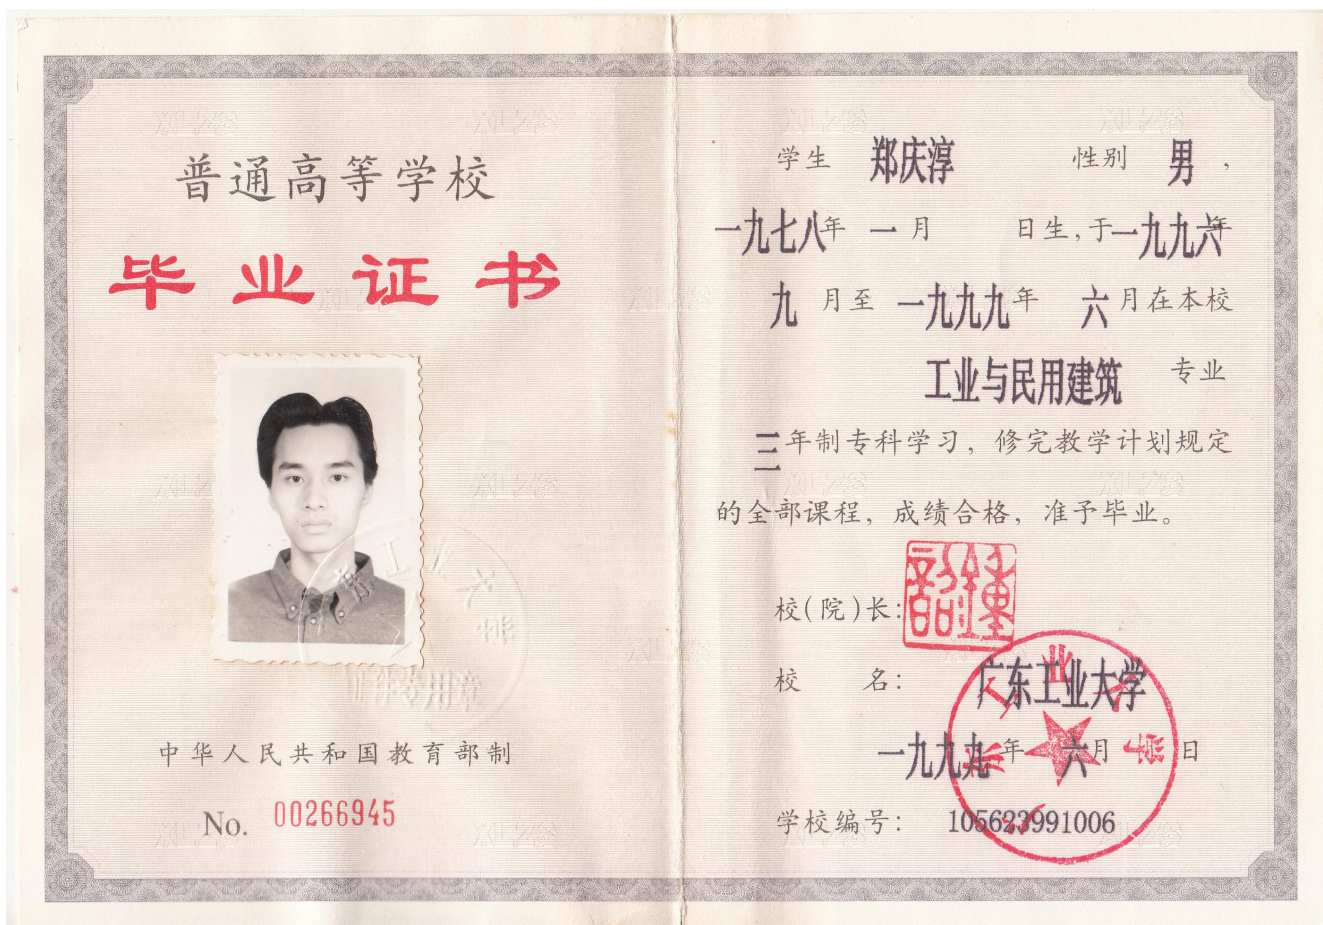 普通高等学校
毕业证书
中华人民共和国教育部制
No. 00266945
学生 郑庆淳 性别 男，
一九七八年 一 月 日生，于一九九六年
九 月至 一九九九年 六 月在本校
工业与民用建筑 专业
三年制专科学习，修完教学计划规定
的全部课程，成绩合格，准予毕业。
校(院)长：
校 名： 广东工业大学
一九九九年 六月 日
学校编号： 105623991006